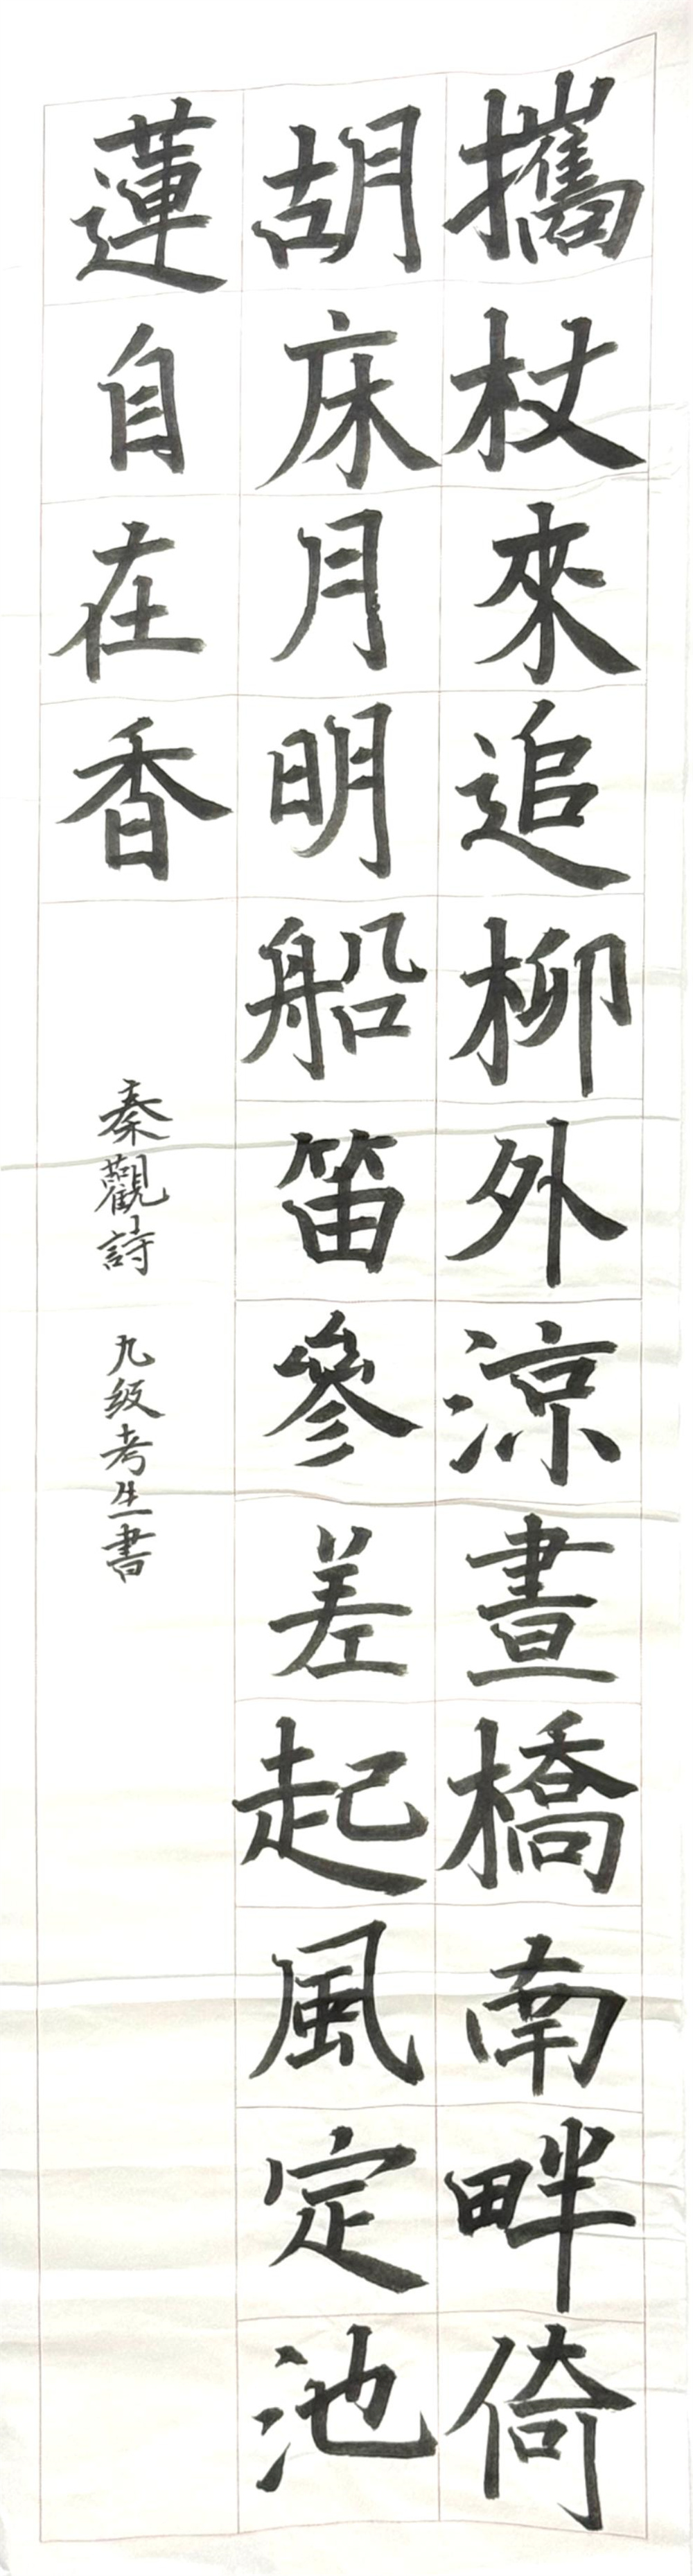 攜杖來追柳外涼晝橋南畔倚
胡床月明船笛參差起風定池
蓮自在香
秦觀詩 九級考生書